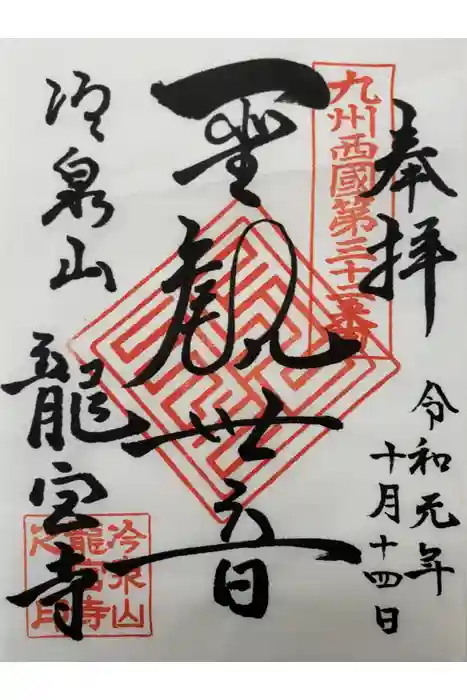 奉拝
九州西國第三十二番
令和元年
十月十四日
聖觀世音
冷泉山
龍宮寺
冷泉山
龍宮寺
之印